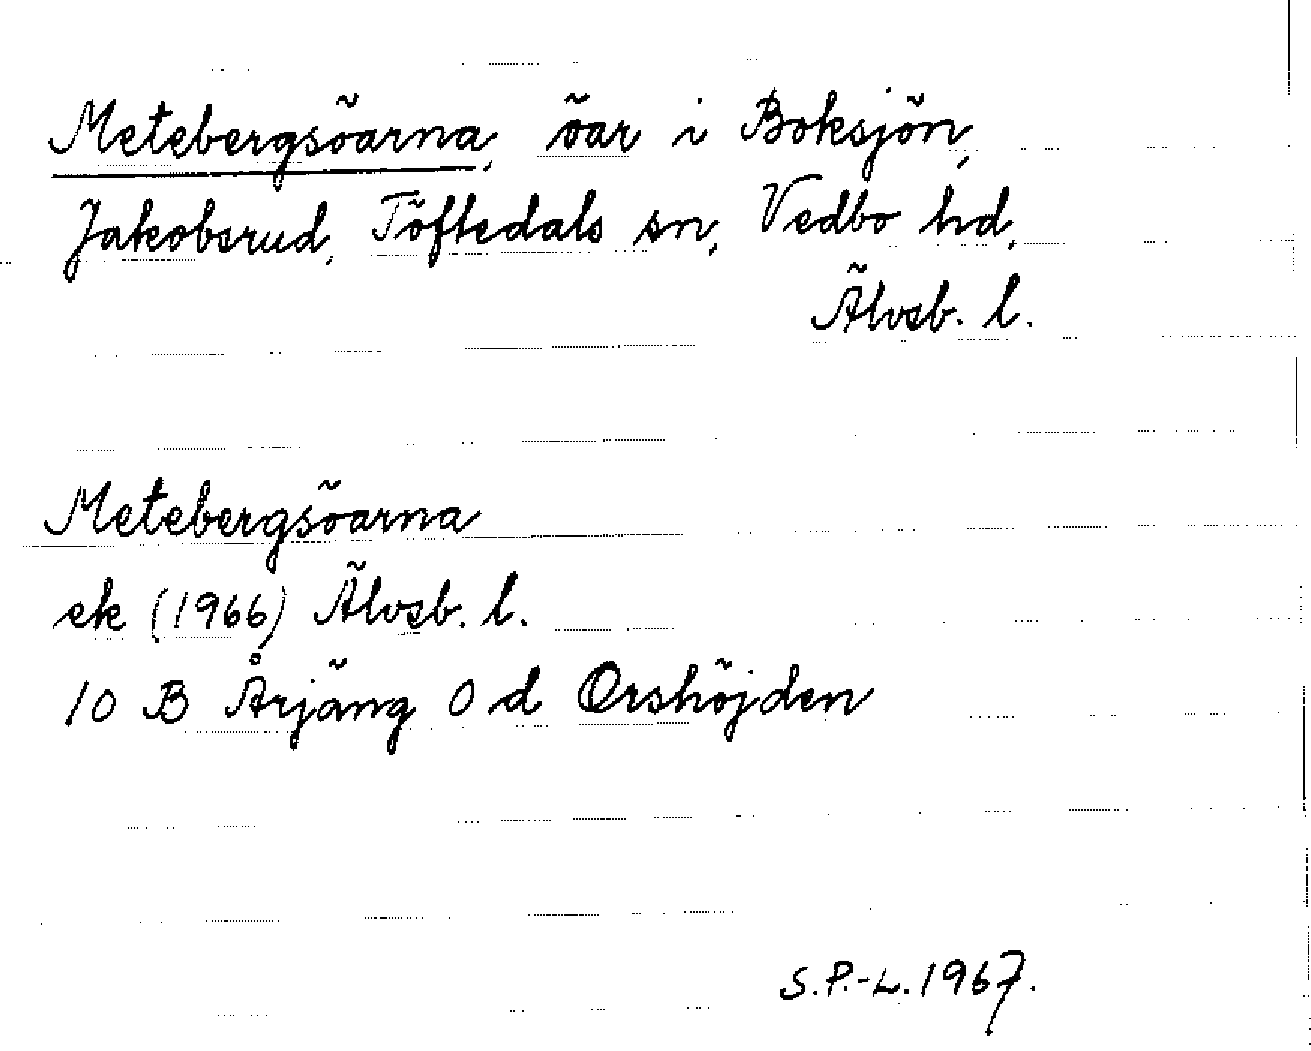 Metebergsöarna, öar i Boksjön,
Jakobsrud, Töftedals sn, Vedbo hd,
Älvsb. l.
Metebergsöarna
ek (1966) Älvsb. l.
10 B Årjäng 0 d Orshöjden
S.P.-L. 1967.